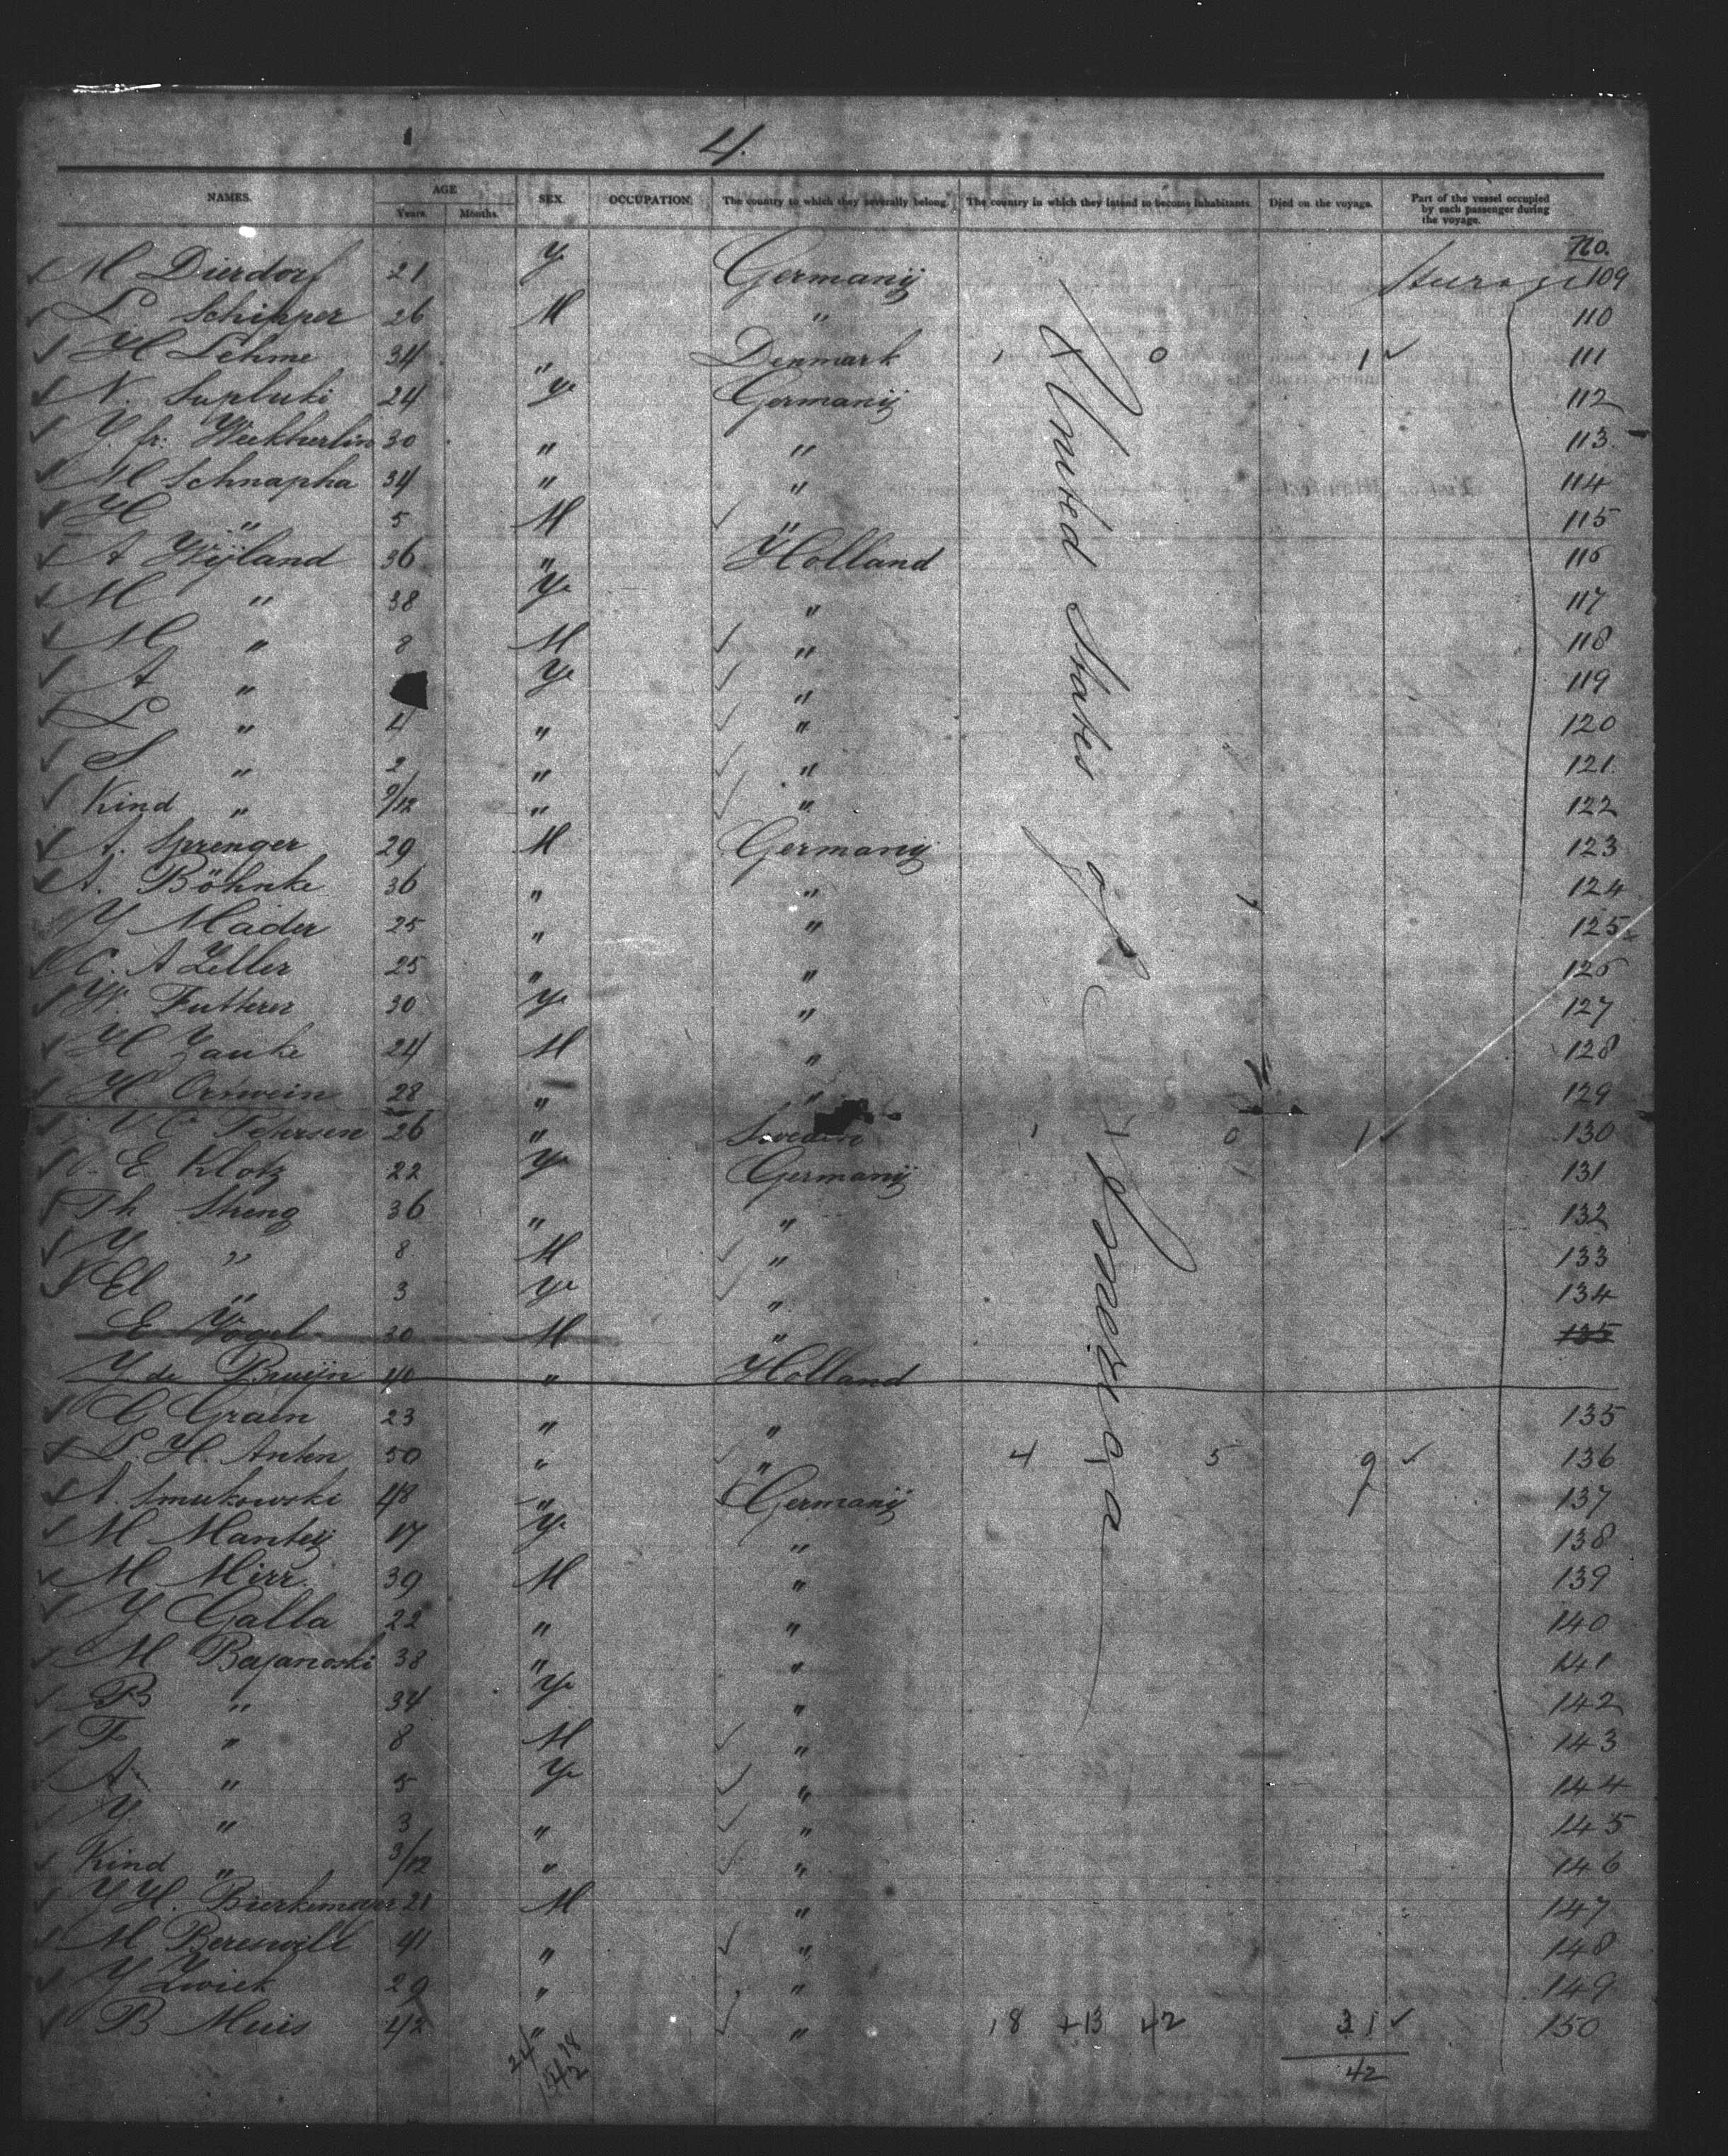 4.
NAMES. AGE Years. Months. SEX. OCCUPATION. The country to which they severally belong. The country in which they intend to become inhabitants. Died on the voyage. Part of the vessel occupied by each passenger during the voyage.
No.
M Dierdorf 21 Germanij 109
L Schipper 26 M " 110
H Lehme 34 " Denmark 1 0 1 ✓ 111
N. 24 Germanij 112
30 " " 113.
M Schnapka 34 " " 114
H " 5 M " 115
A Wijland 36 " Holland 116
M " 38 " 117
M " 8 M " 118
A " " 119
L " 4 " " 120
S " 2 " " 121.
Kind " 9/12 " " 122
A. Sprenger 29 M Germanij 123
A. Böhnke 36 " " 124
Y Mader 25 " " 125
C. A Zeller 25 " " 126
W. Futterer 30 " 127
H Zanke 24 M " 128
H Ortwein 28 " " 129
V C Petersen 26 " Sweden 1 0 1 130
E Klotz 22 Germanij 131
Th Streng 36 " " 132
Y " 8 M " 133
El " 3 " 134
E Vogel 30 M " 135
Y de Bruijn 40 " Holland
G Graen 23 " " 135
L. H. Anten 50 " " 4 5 9 ✓ 136
A. Smukowski 48 " Germanij 137
M Manteij 17 " 138
M Mirr. 39 M " 139
Y Galla 22 " " 140
M Bajanoski 38 " " 141
B " 34 " 142
F " 8 M " 143
A " 5 " 144
Y. " 3 " " 145
Kind " 3/12 " " 146
Y H. Bierkemeyer 21 M " 147
M Bereswill 41 " " 148
Y Zwick 29 " " 149
B Muis 42 " " 18 +13 42 31 ✓ 150
24 18
42
42
United States of America